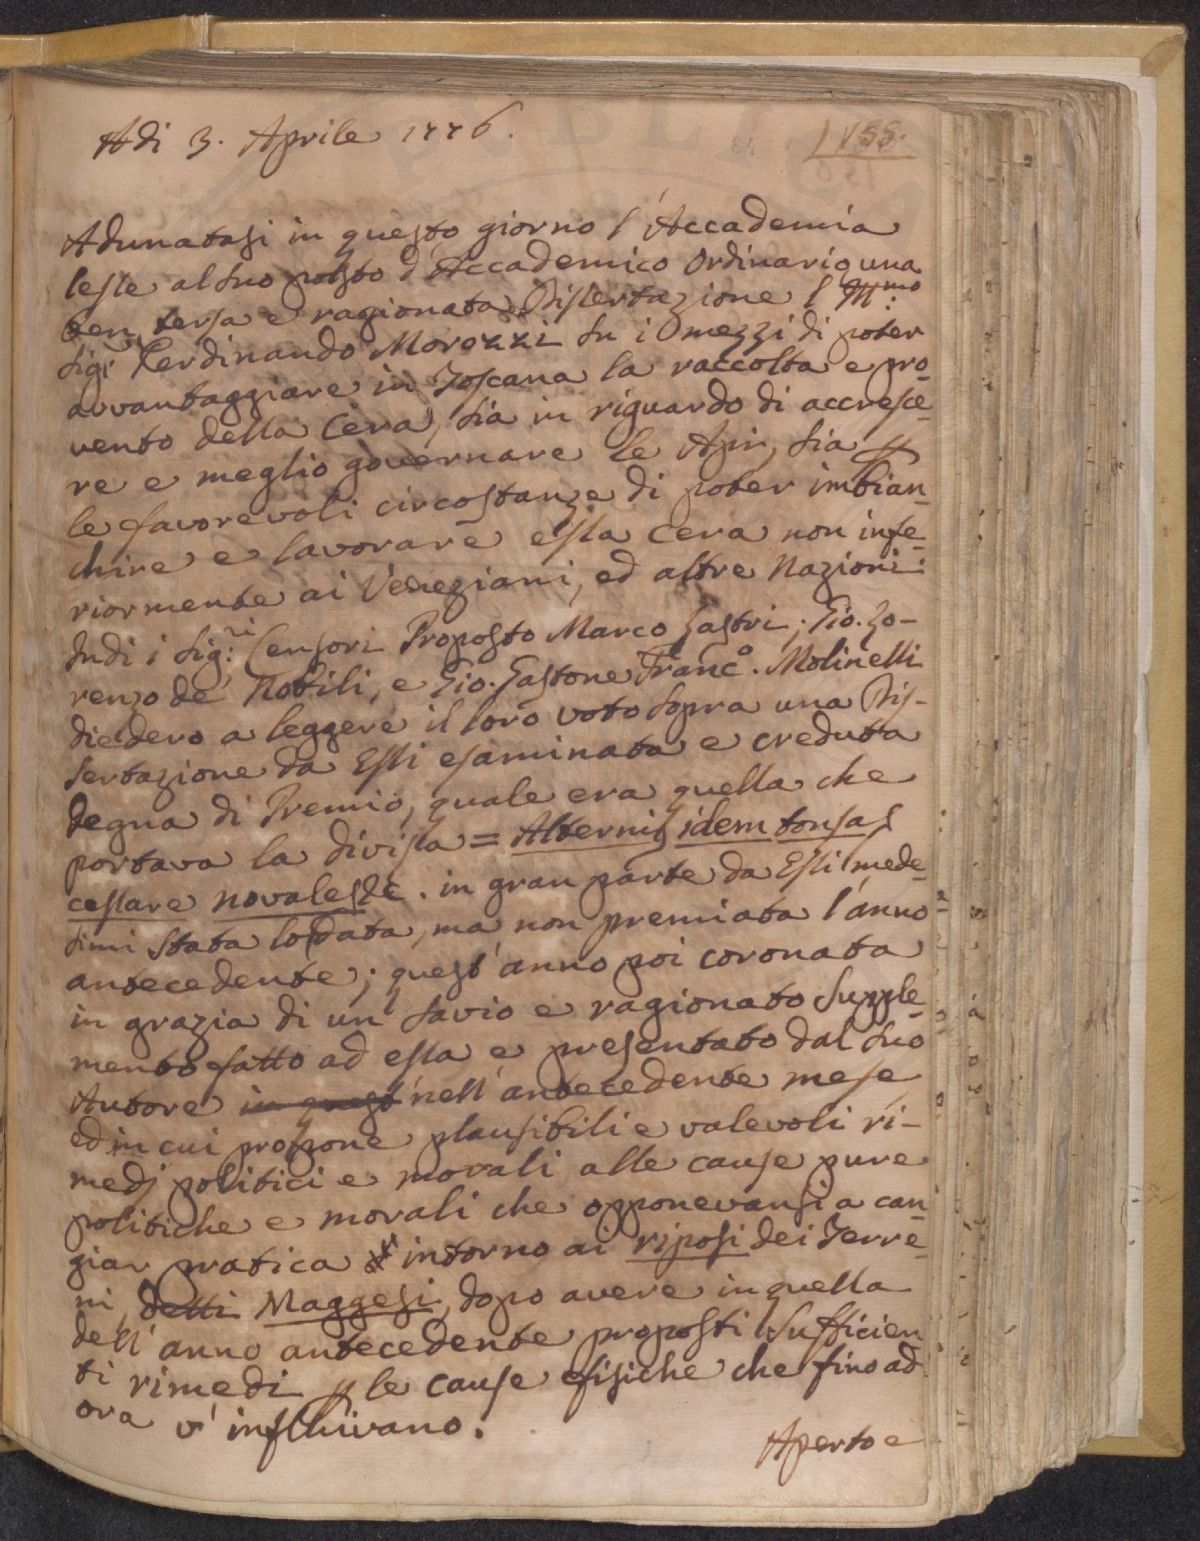 Adi 3. Aprile 1776.
155.
Adunatasi in questo giorno l'Accademia
lesse al suo posto d'Accademico Ordinario una
ben tersa e ragionata Dissertazione l'Ill:mo
Sig: Ferdinando Morozzi su i mezzi di poter
avvantaggiare in Toscana la raccolta e pro-
vento della Cera, sia in riguardo di accresce-
re e meglio governare le Api, sia p
le favorevoli circostanze di poter imbian-
chire e lavorare essa cera non infe-
riormente ai Veneziani, ed altre Nazioni:
Indi i Sig:ri Censori Proposto Marco Lastri; Gio. Lo-
renzo de' Nobili, e Gio. Gastone Franc.o Molinelli
diedero a leggere il loro voto sopra una Dis-
sertazione da Essi esaminata e creduta
degna di Premio, quale era quella che
portava la divisa = Alternis idem tonsas
cessare novales &c. in gran parte da Essi mede-
simi stata lodata, ma non premiata l'anno
antecedente; quest'anno poi coronata
in grazia di un savio e ragionato Supple-
mento fatto ad essa e presentato dal suo
Autore in quest' nell'antecedente mese
ed in cui propone plausibili e valevoli ri-
medj politici e morali alle cause pure
politiche e morali che opponevansi a can-
giar pratica intorno ai riposi dei Terre-
ni, detti Maggesi, dopo avere in quella
dell'anno antecedente proposti sufficien
ti rimedi p le cause fisiche che fino ad
ora v'influivano.
Aperto e